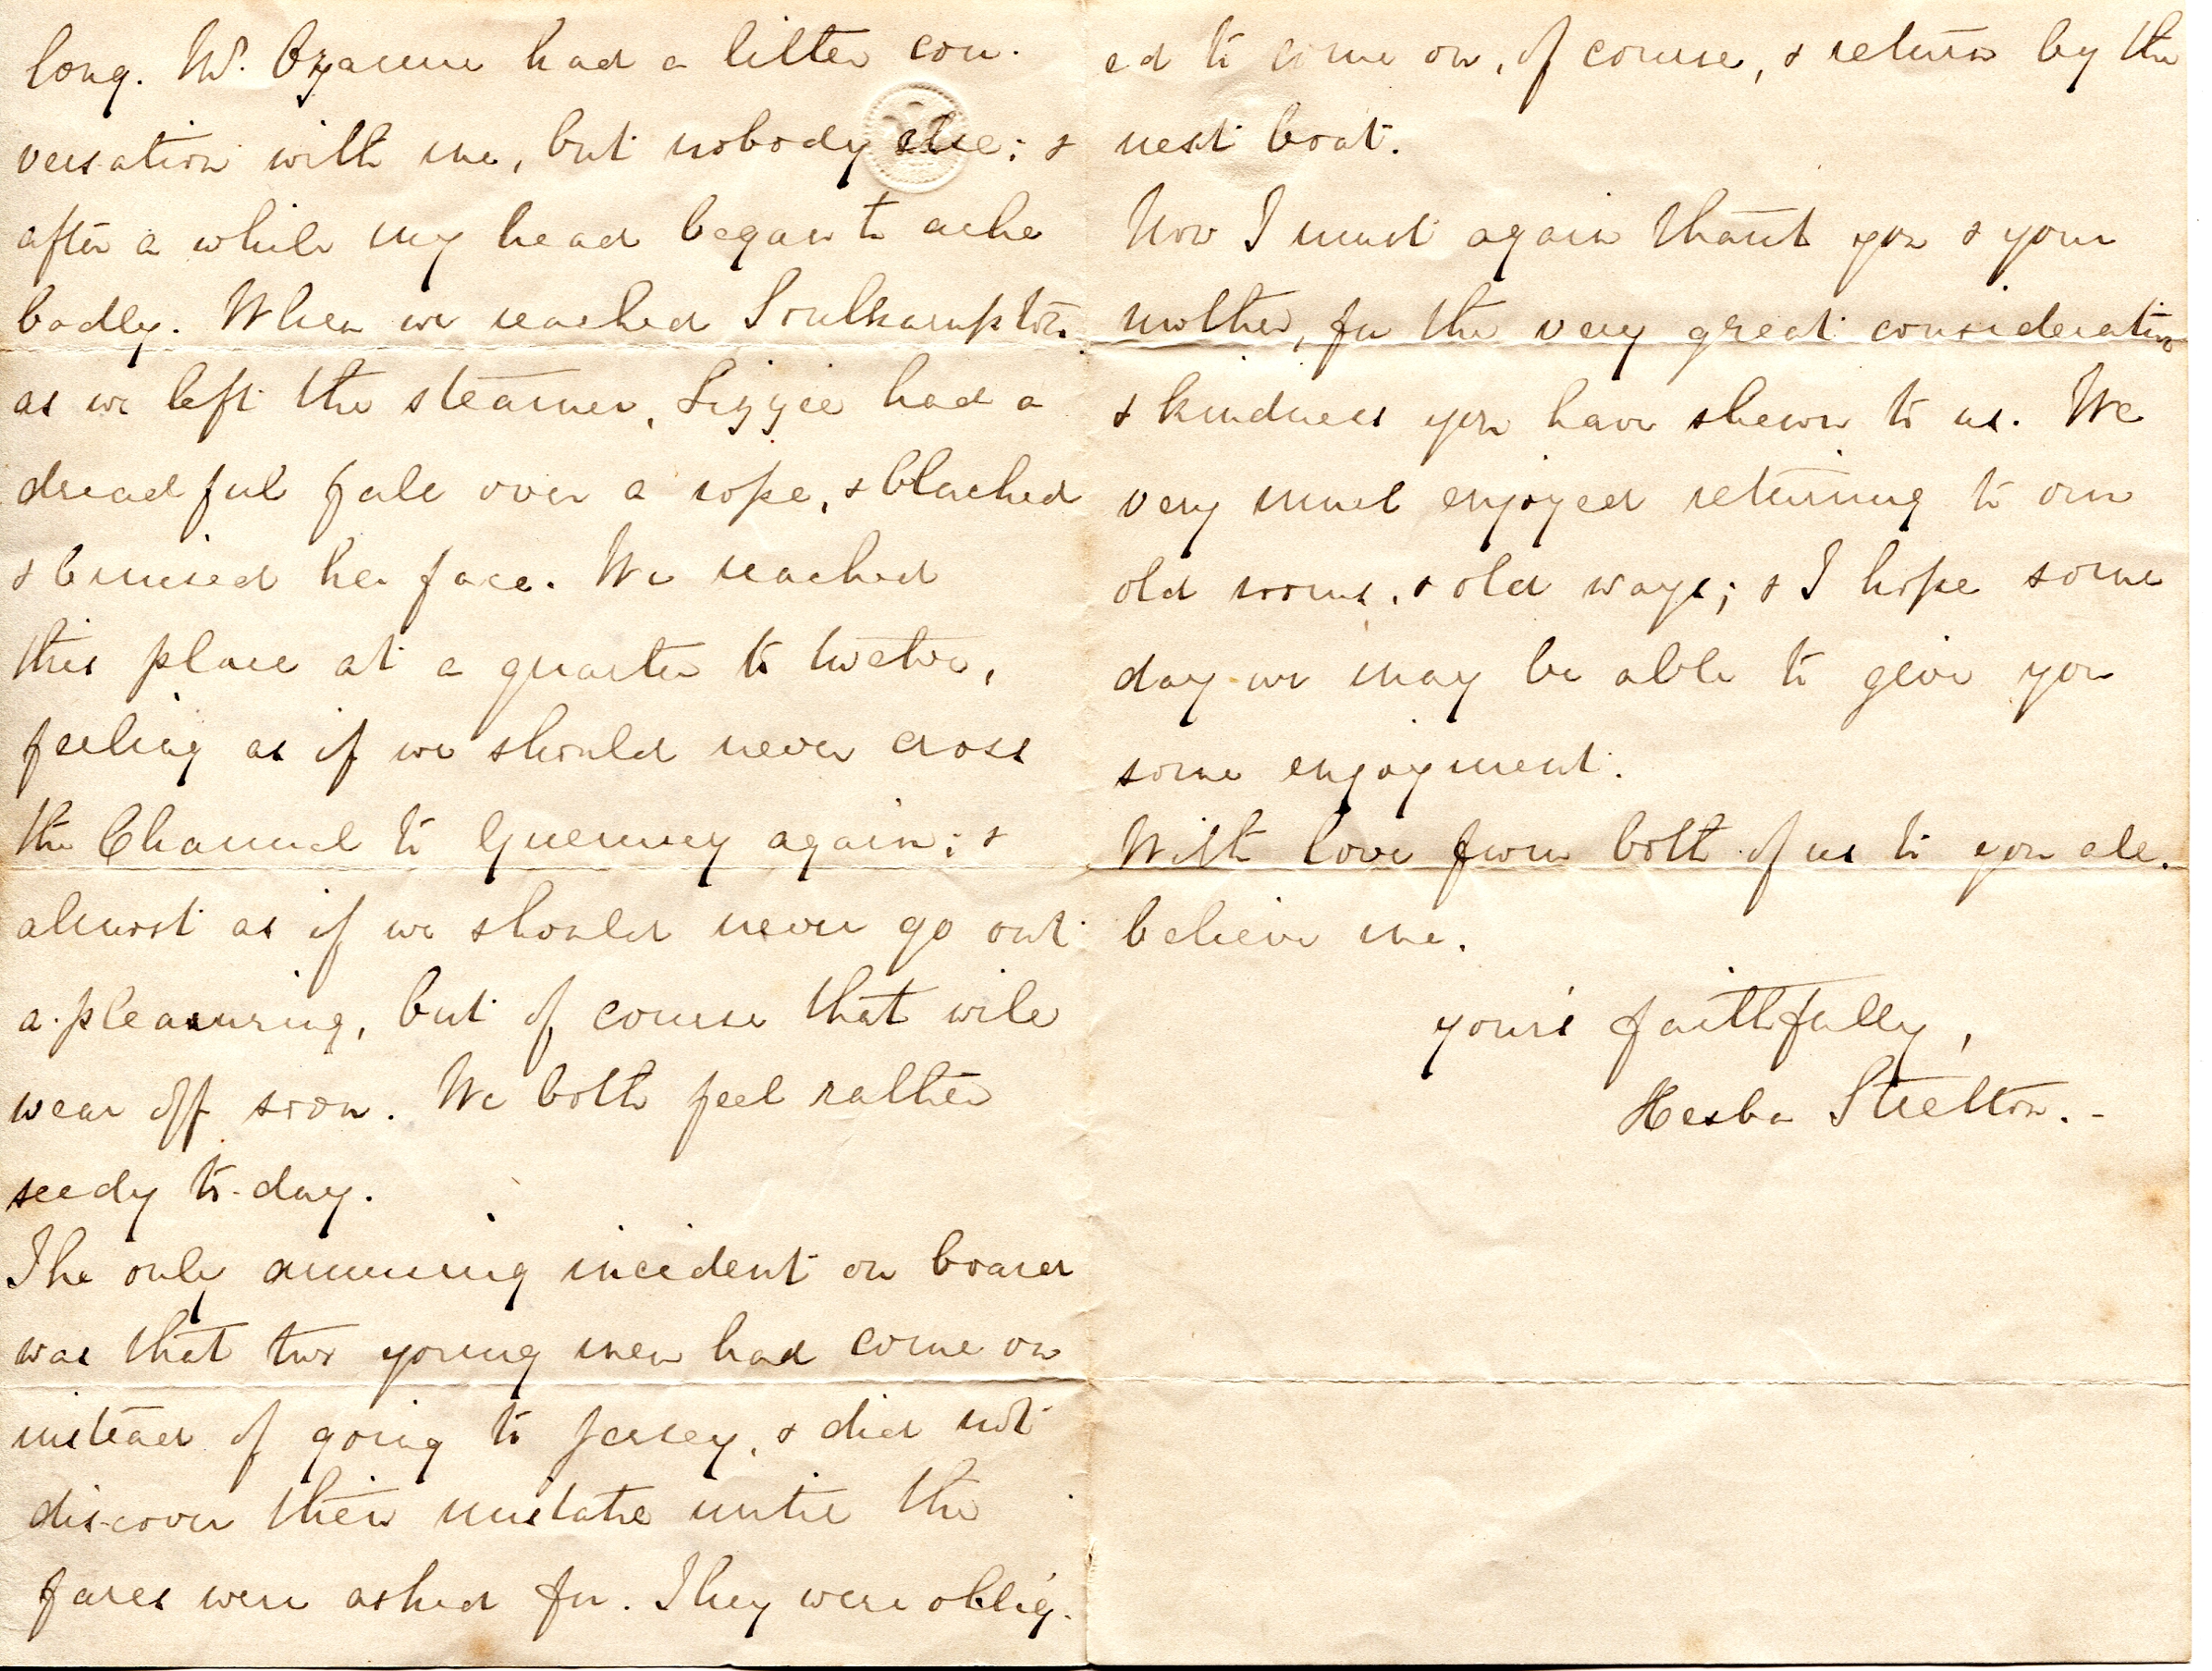 long. Mr. Ozanne had a little con-
versation with me, but nobody else; &
after a while my head began to ache
badly. When we reached Southampton
as we left the steamer, Lizzie had a
dreadful fall over a rope, & blacked
& bruised her face. We reached
this place at a quarter to twelve,
feeling as if we should never cross
the Channel to Guernsey again; &
almost as if we should never go out
a-pleasuring, but of course that will
wear off soon. We both feel rather
seedy to-day.
The only amusing incident on board
was that two young men had come on
instead of going to Jersey, & did not
discover their mistake until the
fares were asked for. They were oblig-
ed to come on, of course, & return by the
next boat.
Now I must again thank you & your
mother, for the very great consideration
& kindness you have shewn to us. We
very much enjoyed returning to our
old rooms, & old ways; & I hope some
day we may be able to give you
some enjoyment.
With love from both of us to you all.
believe me.
yours faithfully,
Hesba Stretton.-